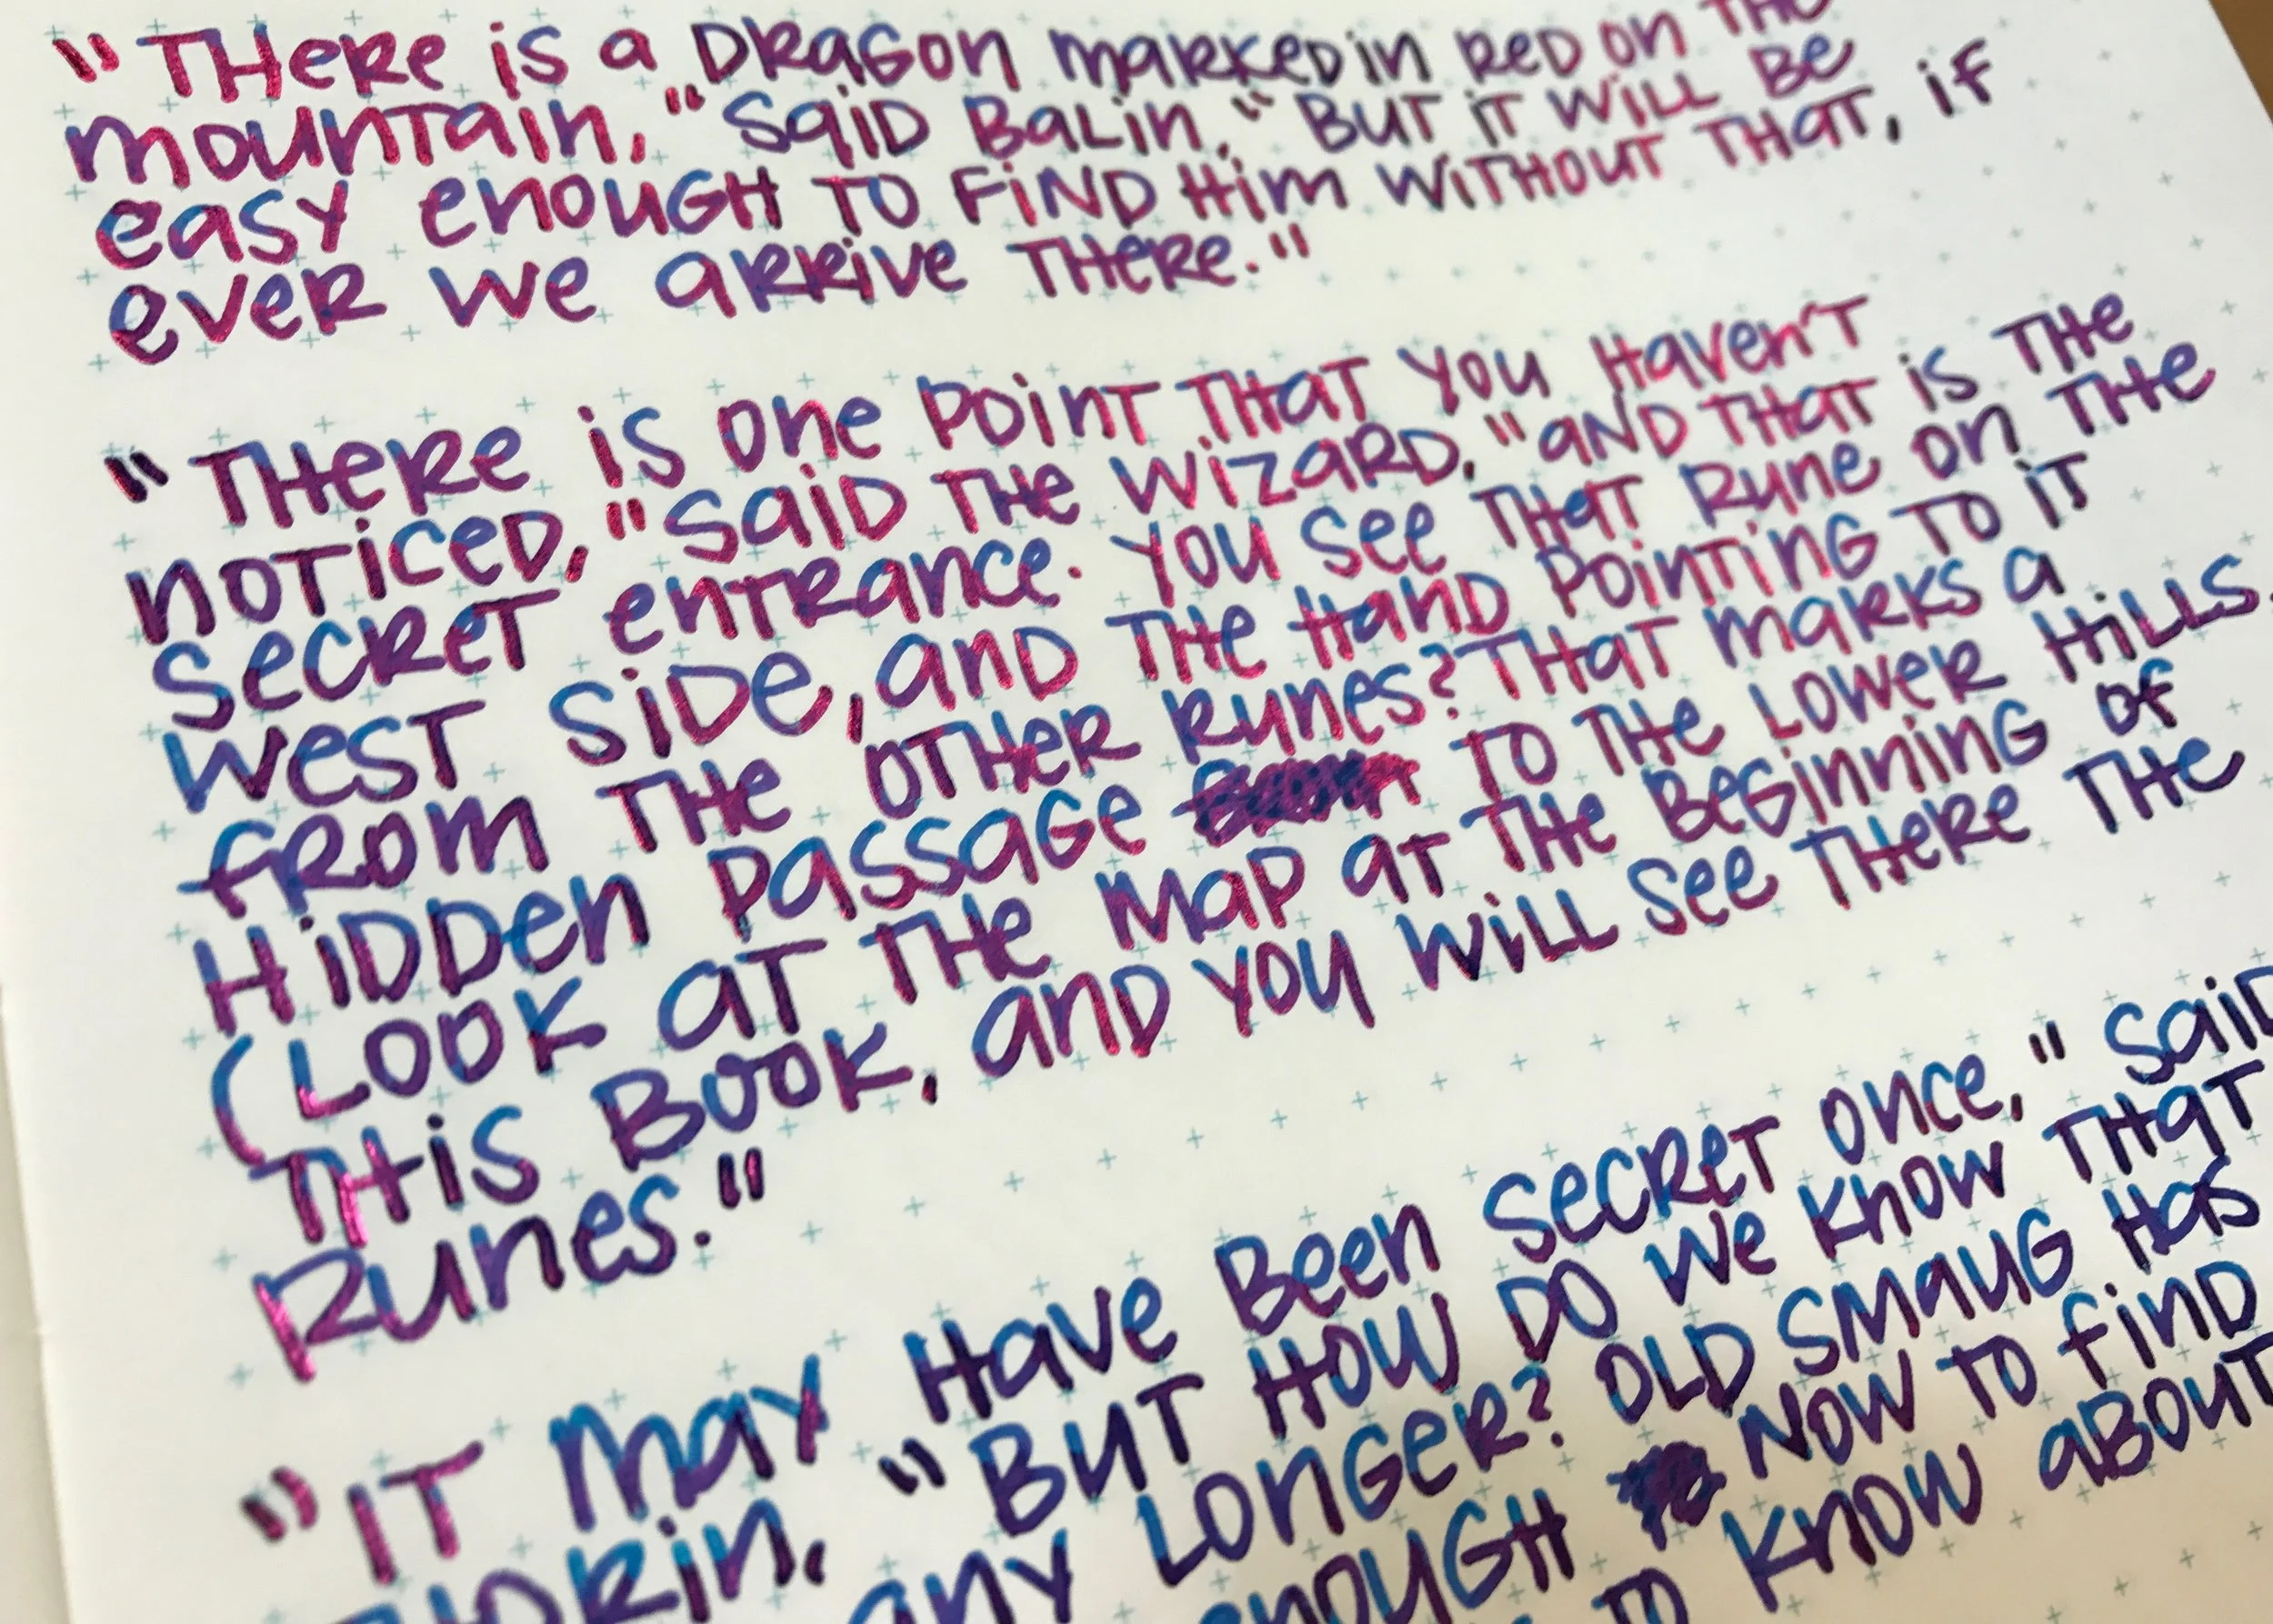 "There is a Dragon marked in red on the
mountain," said Balin, "But it will be
easy enough to find him without that, if
ever we arrive there."
"There is one point that you haven't
noticed," said the wizard, "and that is the
secret entrance. You see that rune on the
west side, and the hand pointing to it
from the other runes? That marks a
hidden passage to the lower hills.
(Look at the map at the beginning of
this book, and you will see there the
runes."
"It may have been secret once," said
"But how do we know that
any longer? Old Smaug has
enough now to find
to know about